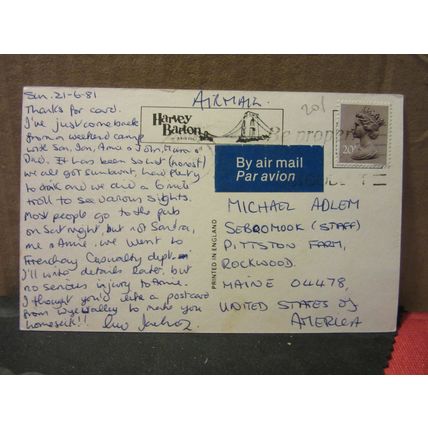 Sun. 21-6-81
Thanks for card.
I've just come back
from a weekend camp
with San, Ian, Anna + John, Mara +
Dad. It has been so hot (honest)
we all got sunburnt, had plenty
to drink and we did a 6 mile
stroll to see various sights.
Most people go to the pub
on Sat night, but not Sandra,
me + Anne. we went to
Frenchay Casualty dept.
I'll write details later, but
no serious injury to Anne.
I thought you'd like a postcard
from Wye Valley to make you
homesick!! luv
AIRMAIL
20/
Harvey
Barton
OF BRISTOL
Be proper
20P
By air mail
Par avion
PRINTED IN ENGLAND
MICHAEL ADLEM
SEBOOMOOK (STAFF)
PITTSTON FARM,
ROCKWOOD.
MAINE 04478,
UNITED STATES OF
AMERICA